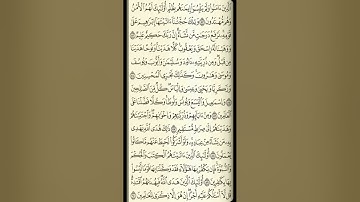 الَّذِينَ ءَامَنُوا۟ وَلَمْ يَلْبِسُوٓا۟ إِيمَـٰنَهُم بِظُلْمٍ أُو۟لَـٰٓئِكَ لَهُمُ ٱلْأَمْنُ
وَهُم مُّهْتَدُونَ ۝ وَتِلْكَ حُجَّتُنَآ ءَاتَيْنَـٰهَآ إِبْرَٰهِيمَ عَلَىٰ
قَوْمِهِۦ ۚ نَرْفَعُ دَرَجَـٰتٍ مَّن نَّشَآءُ ۗ إِنَّ رَبَّكَ حَكِيمٌ عَلِيمٌ ۝
وَوَهَبْنَا لَهُۥٓ إِسْحَـٰقَ وَيَعْقُوبَ ۚ كُلًّا هَدَيْنَا ۚ وَنُوحًا هَدَيْنَا
مِن قَبْلُ ۖ وَمِن ذُرِّيَّتِهِۦ دَاوُۥدَ وَسُلَيْمَـٰنَ وَأَيُّوبَ وَيُوسُفَ
وَمُوسَىٰ وَهَـٰرُونَ ۚ وَكَذَٰلِكَ نَجْزِى ٱلْمُحْسِنِينَ ۝
وَزَكَرِيَّا وَيَحْيَىٰ وَعِيسَىٰ وَإِلْيَاسَ ۖ كُلٌّ مِّنَ ٱلصَّـٰلِحِينَ
۝ وَإِسْمَـٰعِيلَ وَٱلْيَسَعَ وَيُونُسَ وَلُوطًا ۚ وَكُلًّا فَضَّلْنَا عَلَى
ٱلْعَـٰلَمِينَ ۝ وَمِنْ ءَابَآئِهِمْ وَذُرِّيَّـٰتِهِمْ وَإِخْوَٰنِهِمْ ۖ وَٱجْتَبَيْنَـٰهُمْ
وَهَدَيْنَـٰهُمْ إِلَىٰ صِرَٰطٍ مُّسْتَقِيمٍ ۝ ذَٰلِكَ هُدَى ٱللَّهِ يَهْدِى
بِهِۦ مَن يَشَآءُ مِنْ عِبَادِهِۦ ۚ وَلَوْ أَشْرَكُوا۟ لَحَبِطَ عَنْهُم مَّا كَانُوا۟
يَعْمَلُونَ ۝ أُو۟لَـٰٓئِكَ ٱلَّذِينَ ءَاتَيْنَـٰهُمُ ٱلْكِتَـٰبَ وَٱلْحُكْمَ
وَٱلنُّبُوَّةَ ۚ فَإِن يَكْفُرْ بِهَا هَـٰٓؤُلَآءِ فَقَدْ وَكَّلْنَا بِهَا قَوْمًا لَّيْسُوا۟
بِهَا بِكَـٰفِرِينَ ۝ أُو۟لَـٰٓئِكَ ٱلَّذِينَ هَدَى ٱللَّهُ ۖ فَبِهُدَىٰهُمُ ٱقْتَدِهْ ۗ
قُل لَّآ أَسْـَٔلُكُمْ عَلَيْهِ أَجْرًا ۖ إِنْ هُوَ إِلَّا ذِكْرَىٰ لِلْعَـٰلَمِينَ ۝